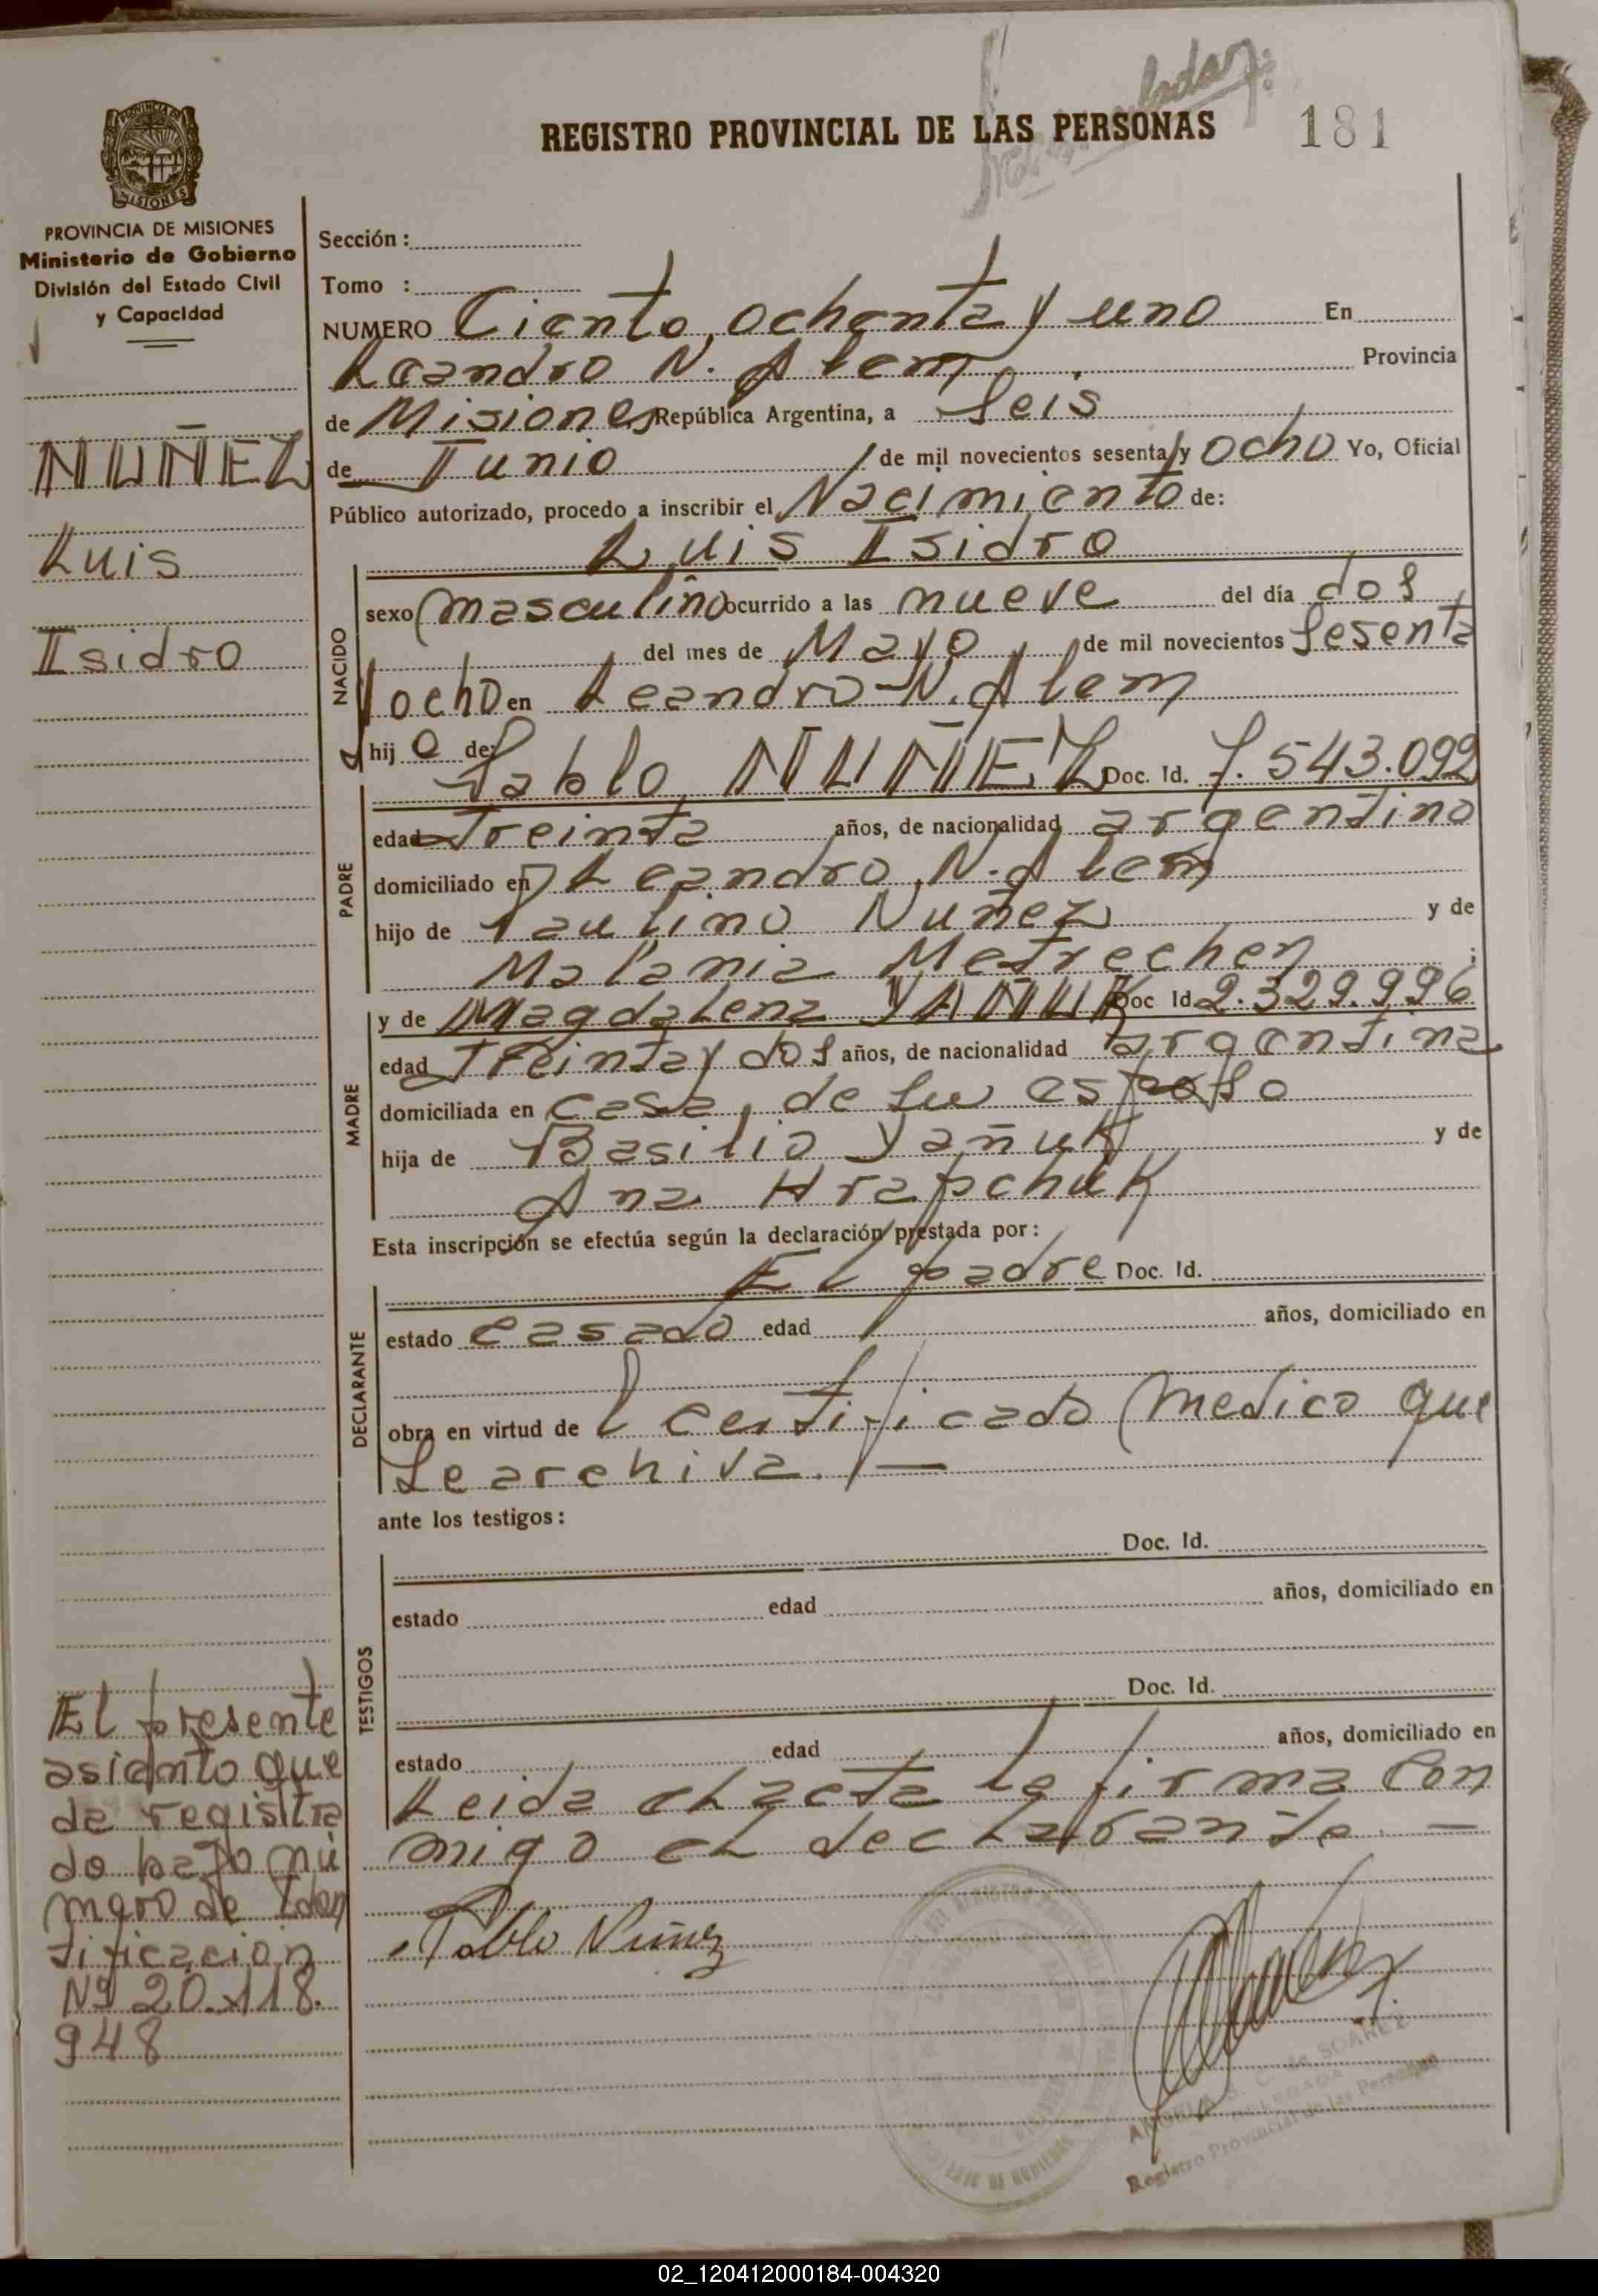 REGISTRO PROVINCIAL DE LAS PERSONAS
181
PROVINCIA DE MISIONES
Ministerio de Gobierno
División del Estado Civil
y Capacidad
NUÑEZ
Luis
Isidro
Sección :
Tomo :
NUMERO Ciento ochenta y uno En
Leandro N. Alem Provincia
de Misiones República Argentina, a Seis
de Junio de mil novecientos sesenta y ocho Yo, Oficial
Público autorizado, procedo a inscribir el Nacimiento de:
Luis Isidro
NACIDO
sexo masculino ocurrido a las nueve del día dos
del mes de Mayo de mil novecientos Sesenta
y ocho en Leandro N. Alem
hij o de:
Pablo NUÑEZ Doc. Id. 7.543.092
PADRE
edad Treinta años, de nacionalidad argentino
domiciliado en Leandro N. Alem
hijo de Paulino Nuñez y de
Malania Metrechen
y de Magdalena YAÑUK Doc Id. 2.329.996
MADRE
edad Treinta y dos años, de nacionalidad argentina
domiciliada en casa de su esposo
hija de Basilio Yañuk y de
Ana Hrapchuk
Esta inscripción se efectúa según la declaración prestada por :
El padre Doc. Id.
DECLARANTE
estado casado edad años, domiciliado en
obra en virtud de l certificado medico que
se archiva. —
ante los testigos :
Doc. Id.
TESTIGOS
estado edad años, domiciliado en
Doc. Id.
estado edad años, domiciliado en
Leida el acta la firma con
migo el declarante. —
Pablo Nuñez
El presente
asiento que
da registra
do bajo nú
mero de Iden
tificacion
Nº 20.118.
948
C. de SOAREZ
DELEGADA
Registro Provincial de las Personas
02_120412000184-004320